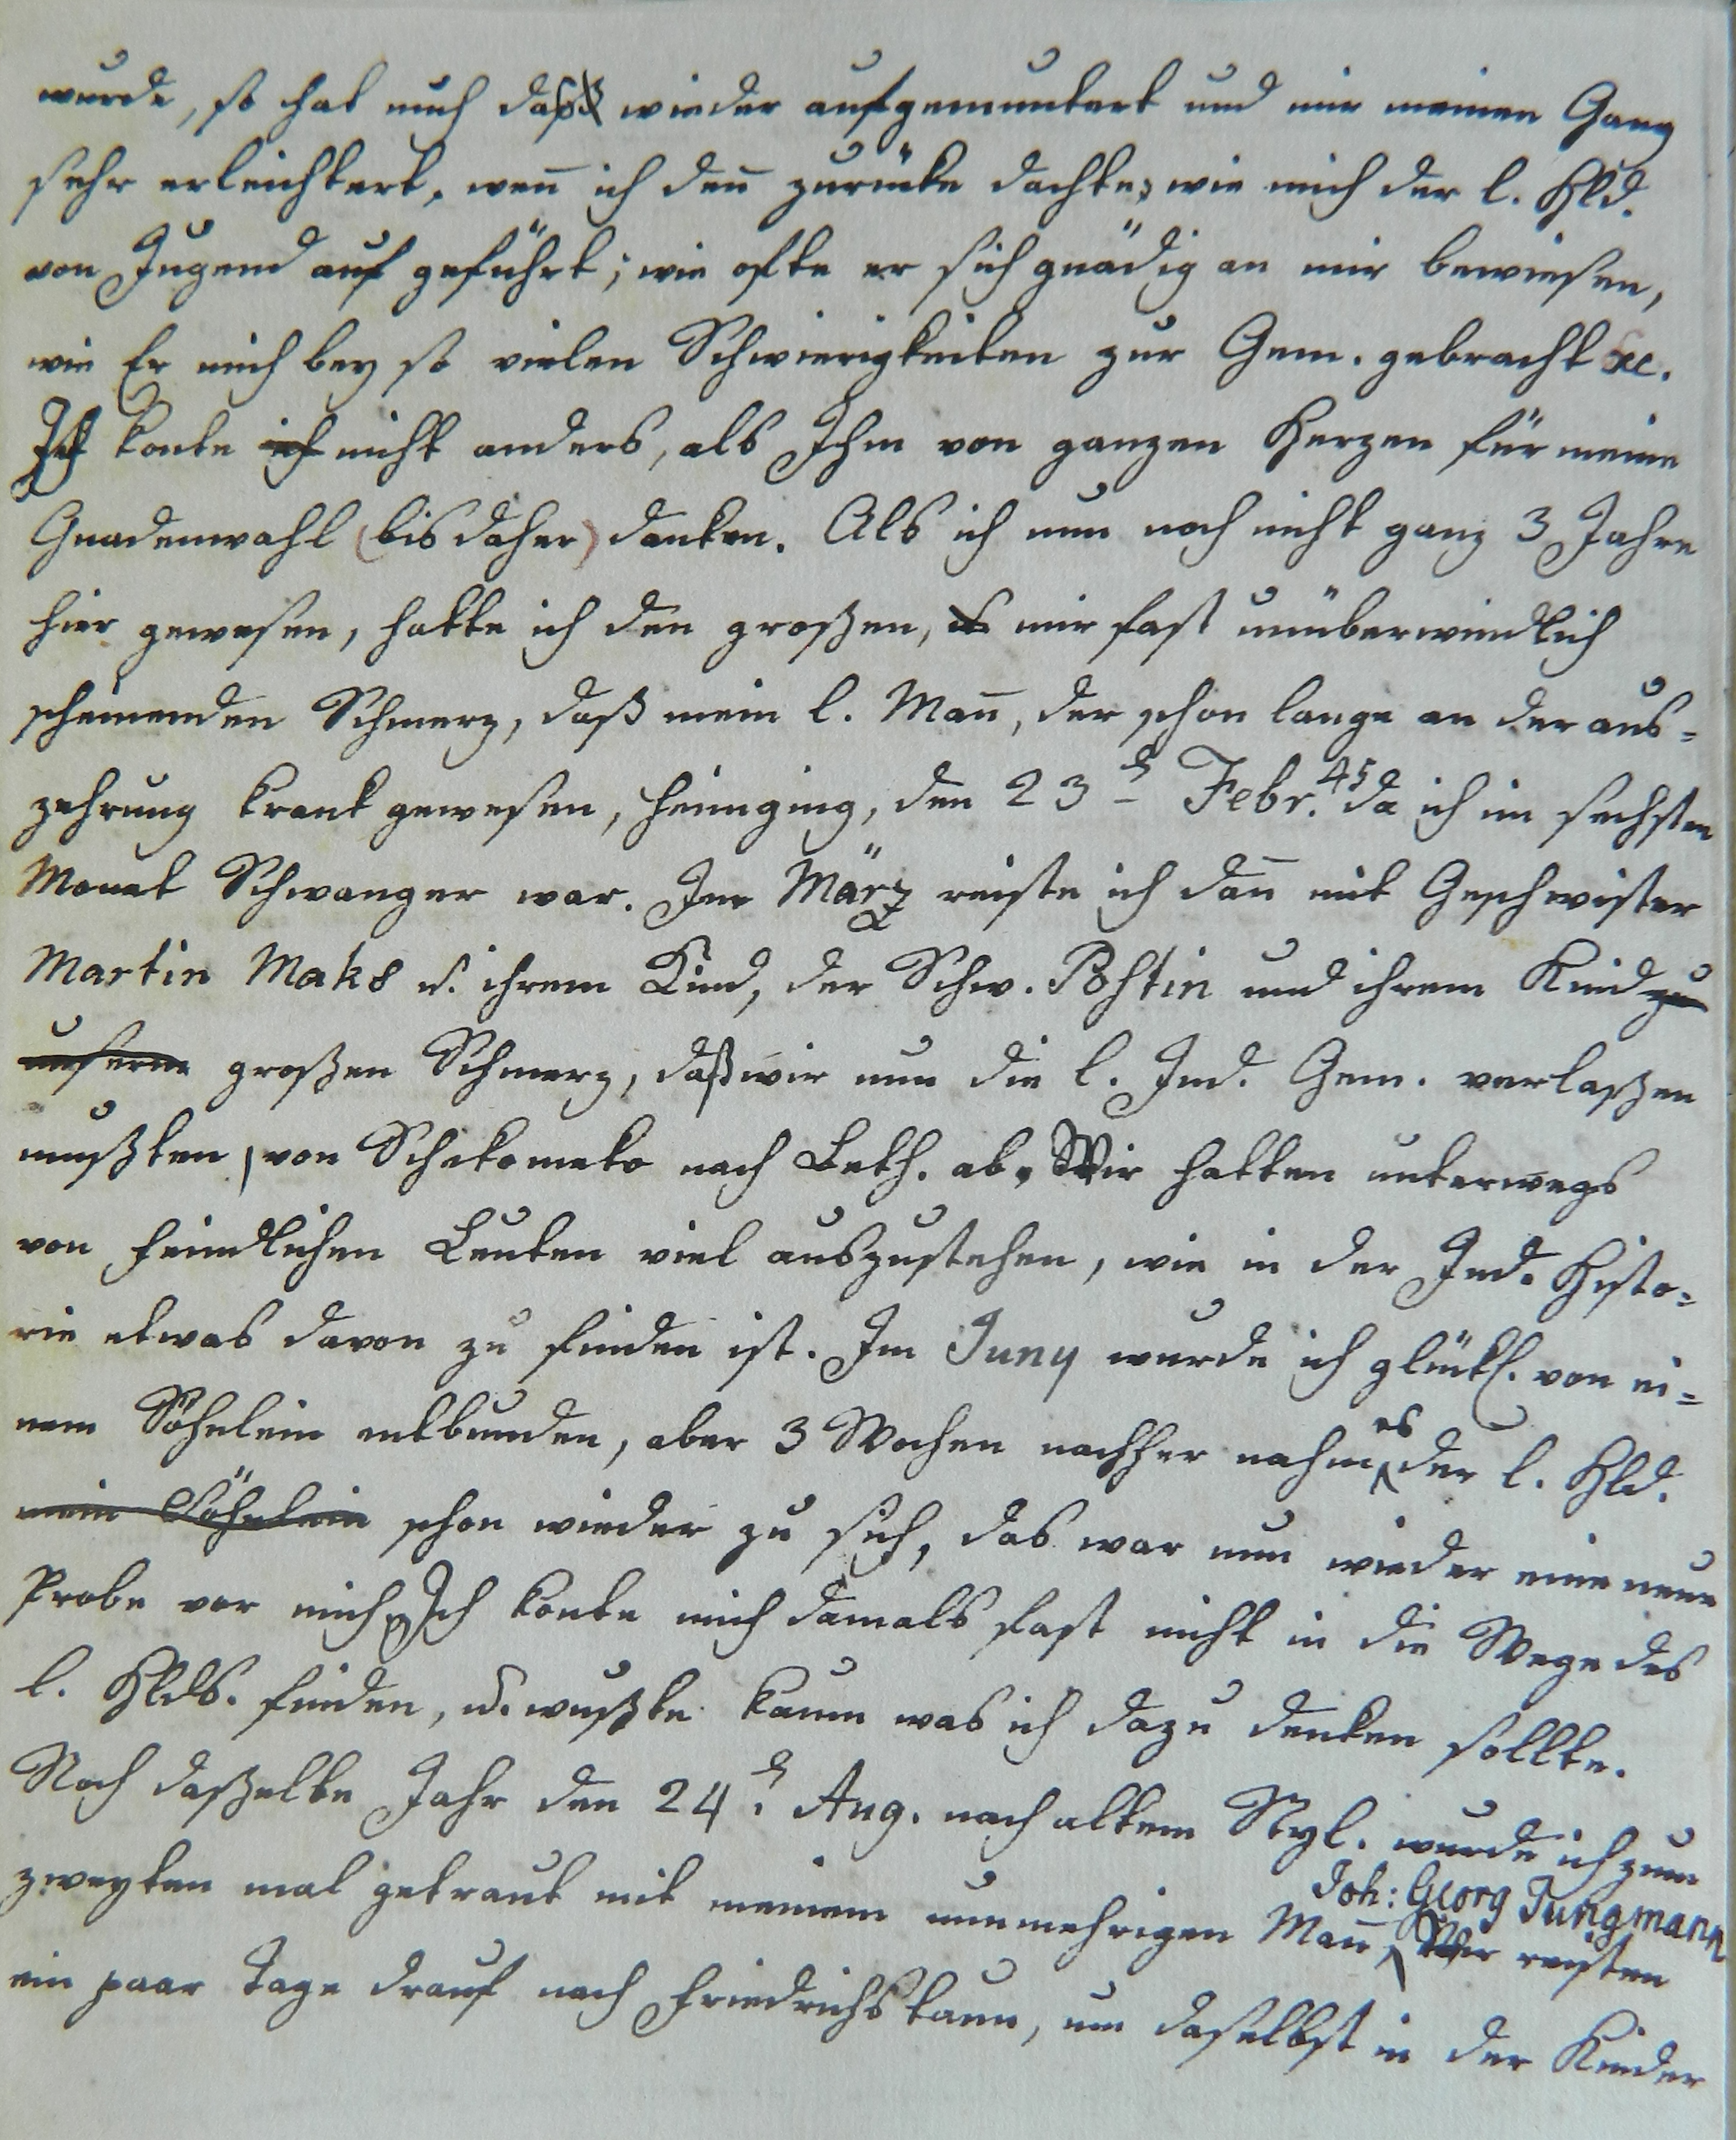 wurde, so hat mich daß wieder aufgemuntert und mir meinen Gang
sehr erleichtert, wen̄ ich den̄ zurücke dachte; wie mich der l. Hld.
von Jugend auf geführt; wie ofte er sich gnädig an mir bewiesen,
wie Er mich bey so vielen Schwierigkeiten zur Gem. gebracht &c.
Ich konte ich nicht anders, als Ihm von ganzen Herzen für meine
Gnadenwahl (bis daher) danken. Als ich nun noch nicht ganz 3 Jahre
hier gewesen, hatte ich den großen, mir fast unüberwindlich
scheinenden Schmerz, daß mein l. Man̄, der schon lange an der aus=
zehrung krank gewesen, heimging, den 23 d Febr. 45 da ich im sechsten
Monat Schwanger war. Im März reiste ich dan̄ mit Geschwister
Martin Maks u. ihrem Kind, der Schw. Postin und ihrem Kind zu
unserm großen Schmerz, daß wir nun die l. Ind. Gem. verlaßen
mußten, von Schekomeko nach Beth. ab. Wir hatten unterwegs
von feindlichen Leuten viel auszustehen, wie in der Ind. Histo=
rie etwas davon zu finden ist. Im Juny wurde ich glückl. von ei=
nem Söhnlein entbunden, aber 3 Wochen nachher nahm es der l. Hld.
mein Söhnlein schon wieder zu sich, das war nun wieder eine neue
Probe vor mich, Ich konte mich damals fast nicht in die Wege des
l. Hlds. finden, u. wußte kaum was ich dazu denken sollte.
Noch daßelbe Jahr den 24 d. Aug. nach altem Styl. wurde ich zum
zweyten mal getraut mit meinem nunmehrigen Man̄ Joh: Georg Jungmann, Wir reisten
ein paar Tage drauf nach Friedrichstaun, um daselbst in der Kinder